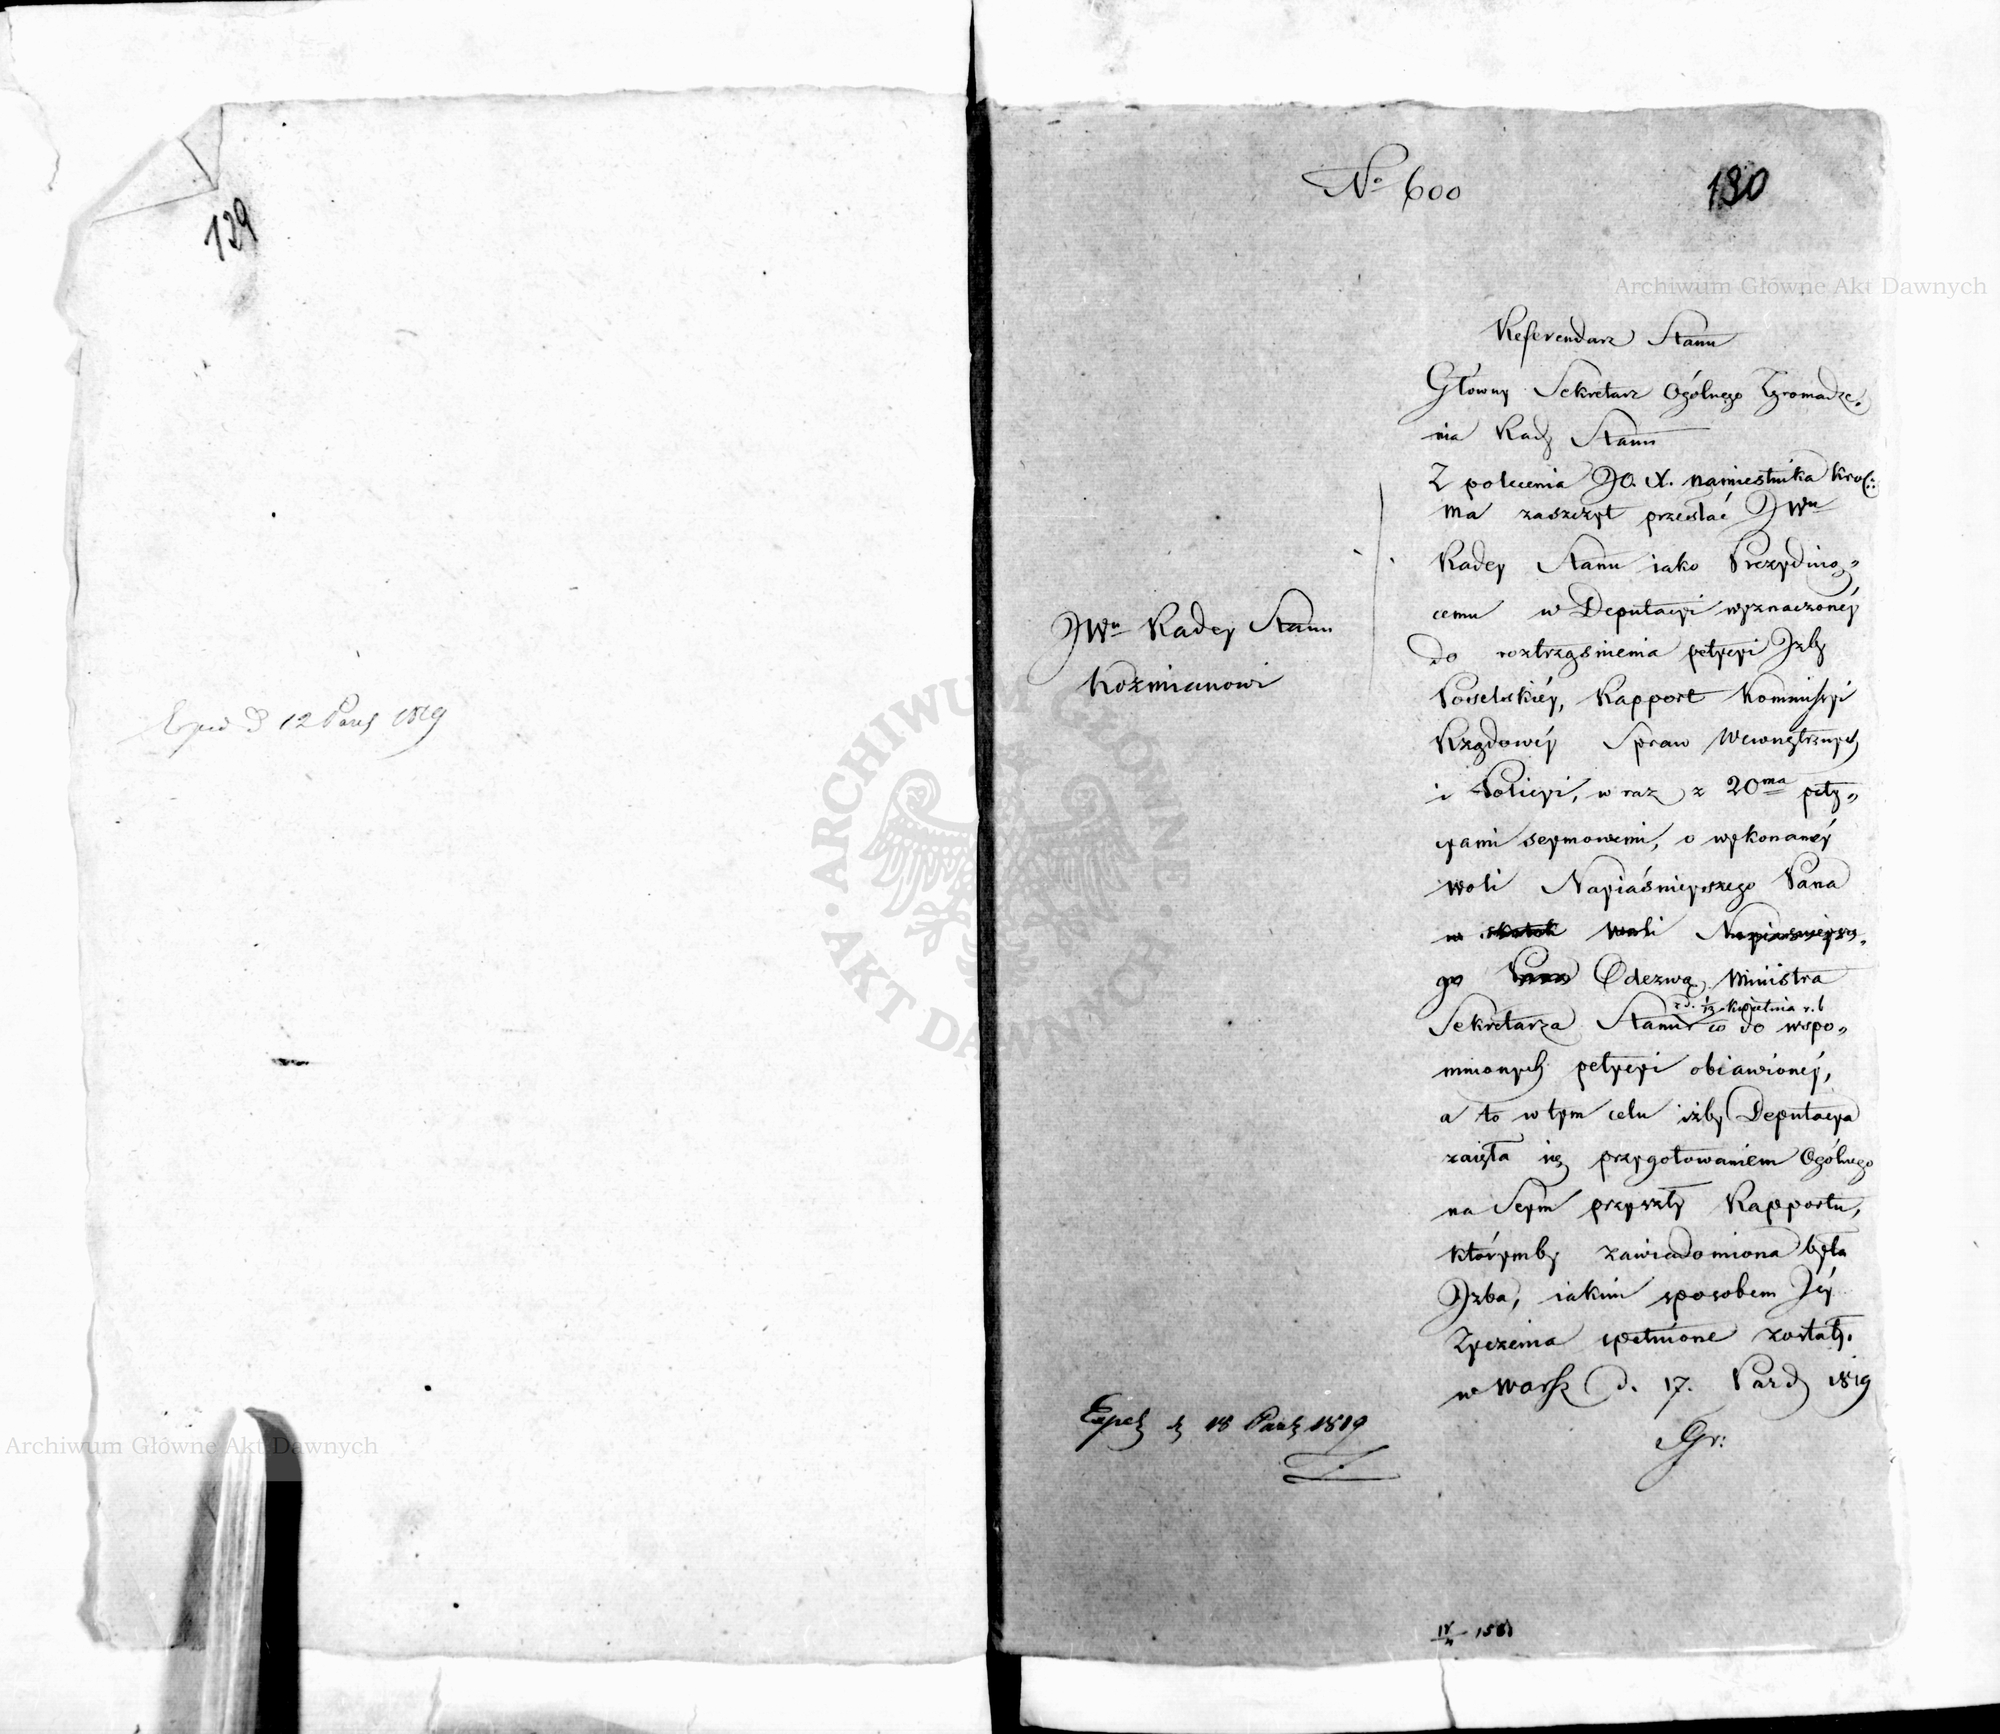 129
Exped d 12 Paźd 1819
No 600
130
Referendarz Stanu
Główny Sekretarz Ogólnego Zgromadze-
nia Rady Stanu
Z polecenia JO. X. Namiestnika Krol:
ma zaszczyt przesłać JWu
Radcy Stanu iako Prezyduią-
cemu w Deputacyi wyznaczonéy
do roztrząśnienia petycyi Izby
Poselskiéy, Rapport Kommissyi
Rządowéy Spraw Wewnętrznych
i Policyi, wraz z 20ma pety-
cyami seymowemi, o wykonanéy
woli Nayiaśnieyszego Pana
w skutek woli Nayiaśnieysze-
go Pana Odezwą Ministra
z d. 1/13 Kwietnia r. b
Sekretarza Stanu co do wspo-
mnionych petycyi obiawionéy,
a to w tym celu iżby Deputacya
zaięła się przygotowaniem Ogólnego
na Seym przyszły Rapportu,
którymby zawiadomiona była
Izba, iakim sposobem Jéy
życzenia spełnione zostały.
w Warsz d. 17. Paźd 1819
Gr:
JWu Radcy Stanu
Koźmianowi
Exped d 18 Paźd 1819
Archiwum Główne Akt Dawnych
Archiwum Główne Akt Dawnych
ARCHIWUM GŁÓWNE AKT DAWNYCH